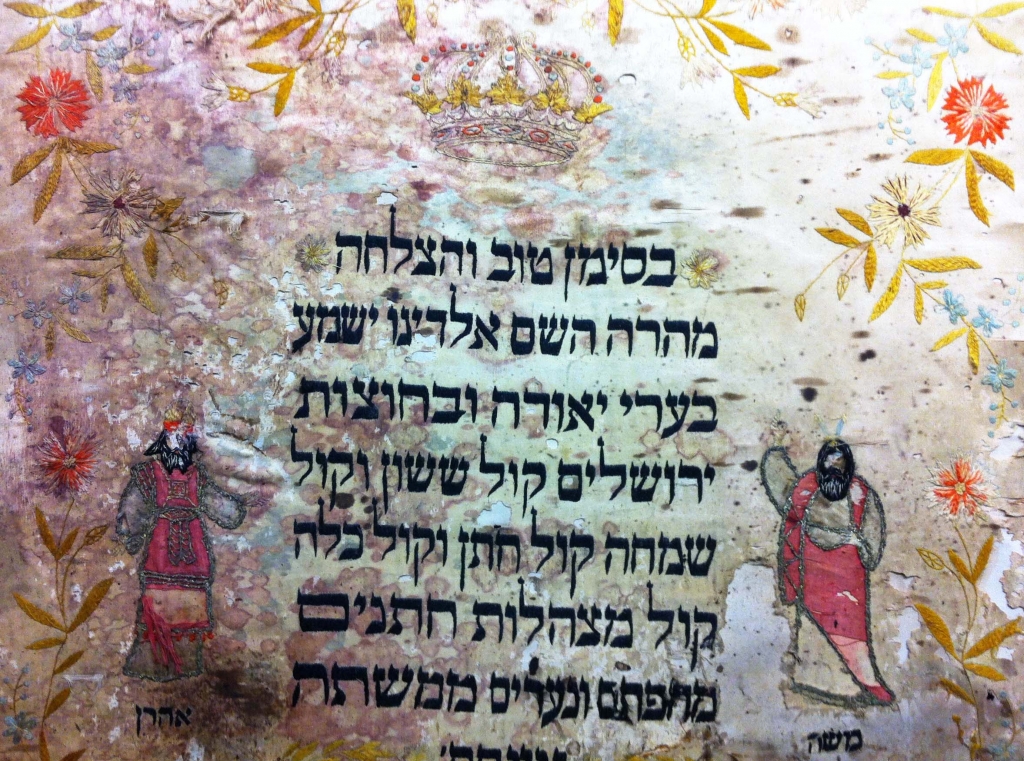 בסימן טוב והצלחה
מהרה השם אלדינו ישמע
בערי יאודה ובחוצות
ירושלים קול ששון וקול
שמחה קול חתן וקול כלה
קול מצהלות חתנים
מחפתם ונערים ממשתה
משה
אהרן